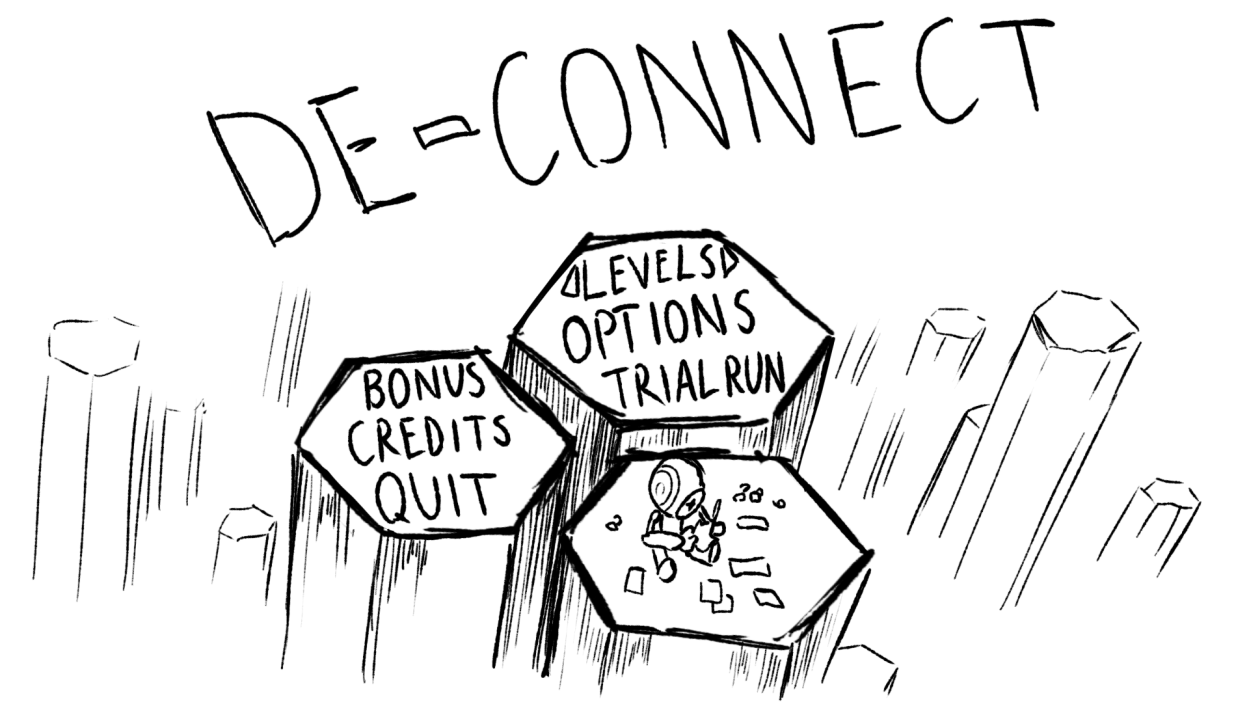 DE-CONNECT
LEVELS
OPTIONS
TRIAL RUN
BONUS
CREDITS
QUIT